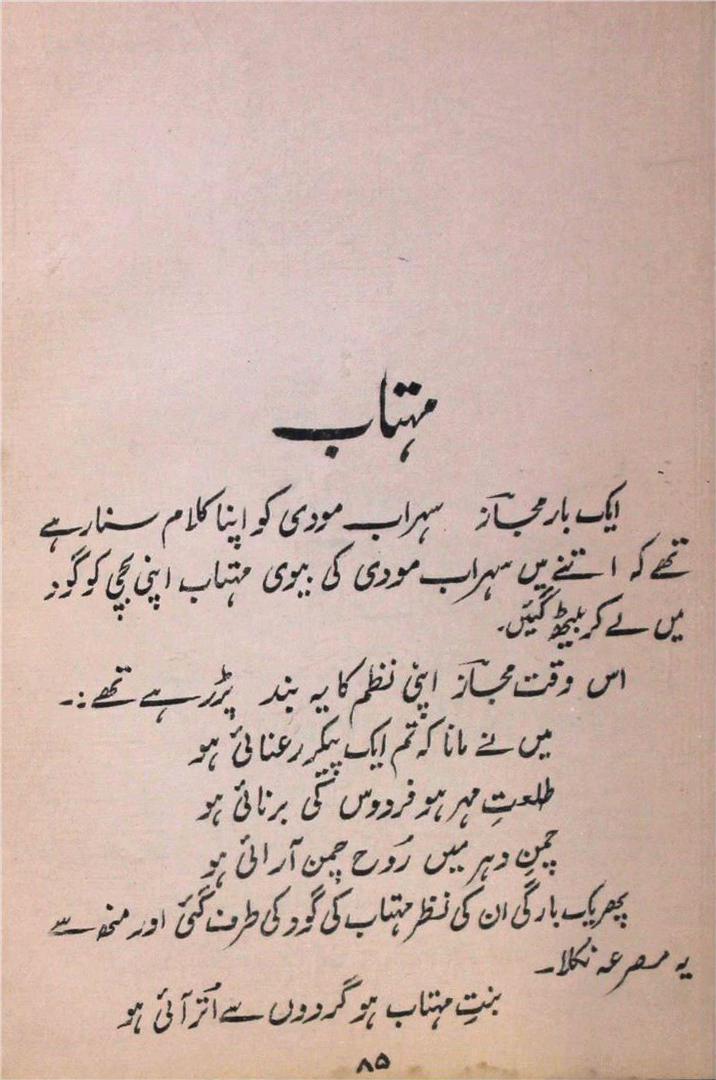 مہتاب
ایک بار مجازؔ سہراب مودی کو اپنا کلام سنا رہے
تھے کہ اتنے میں سہراب مودی کی بیوی مہتاب اپنی بچی کو گود
میں لے کر بیٹھ گئیں۔
اس وقت مجازؔ اپنی نظم کا یہ بند پڑر ہے تھے :۔
میں نے مانا کہ تم ایک پیکر رعنائی ہو
طلعتِ مہر ہو فردوس کی برنائی ہو
چمنِ دہر میں رُوح چمن آرائی ہو
پھر یک بارگی ان کی نظر مہتاب کی گود کی طرف گئی اور منھ سے
یہ مصرعہ نکلا۔
بنتِ مہتاب ہو گردوں سے اُتر آئی ہو
۸۵